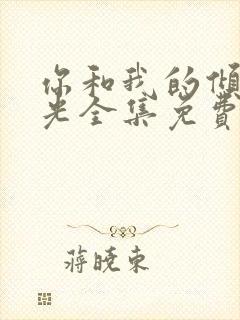 你和我的倾
光全集免費
蒋晓东